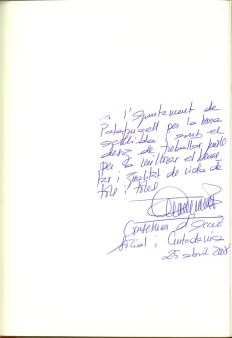 A l'Ajuntament de
Palafrugell per la bona
acollida i amb el
desig de treballar junts
per a millorar el benes
tar i qualitat de vida de
tots i totes
Consellera d'Acció
Social i Ciutadania
25 abril 2008